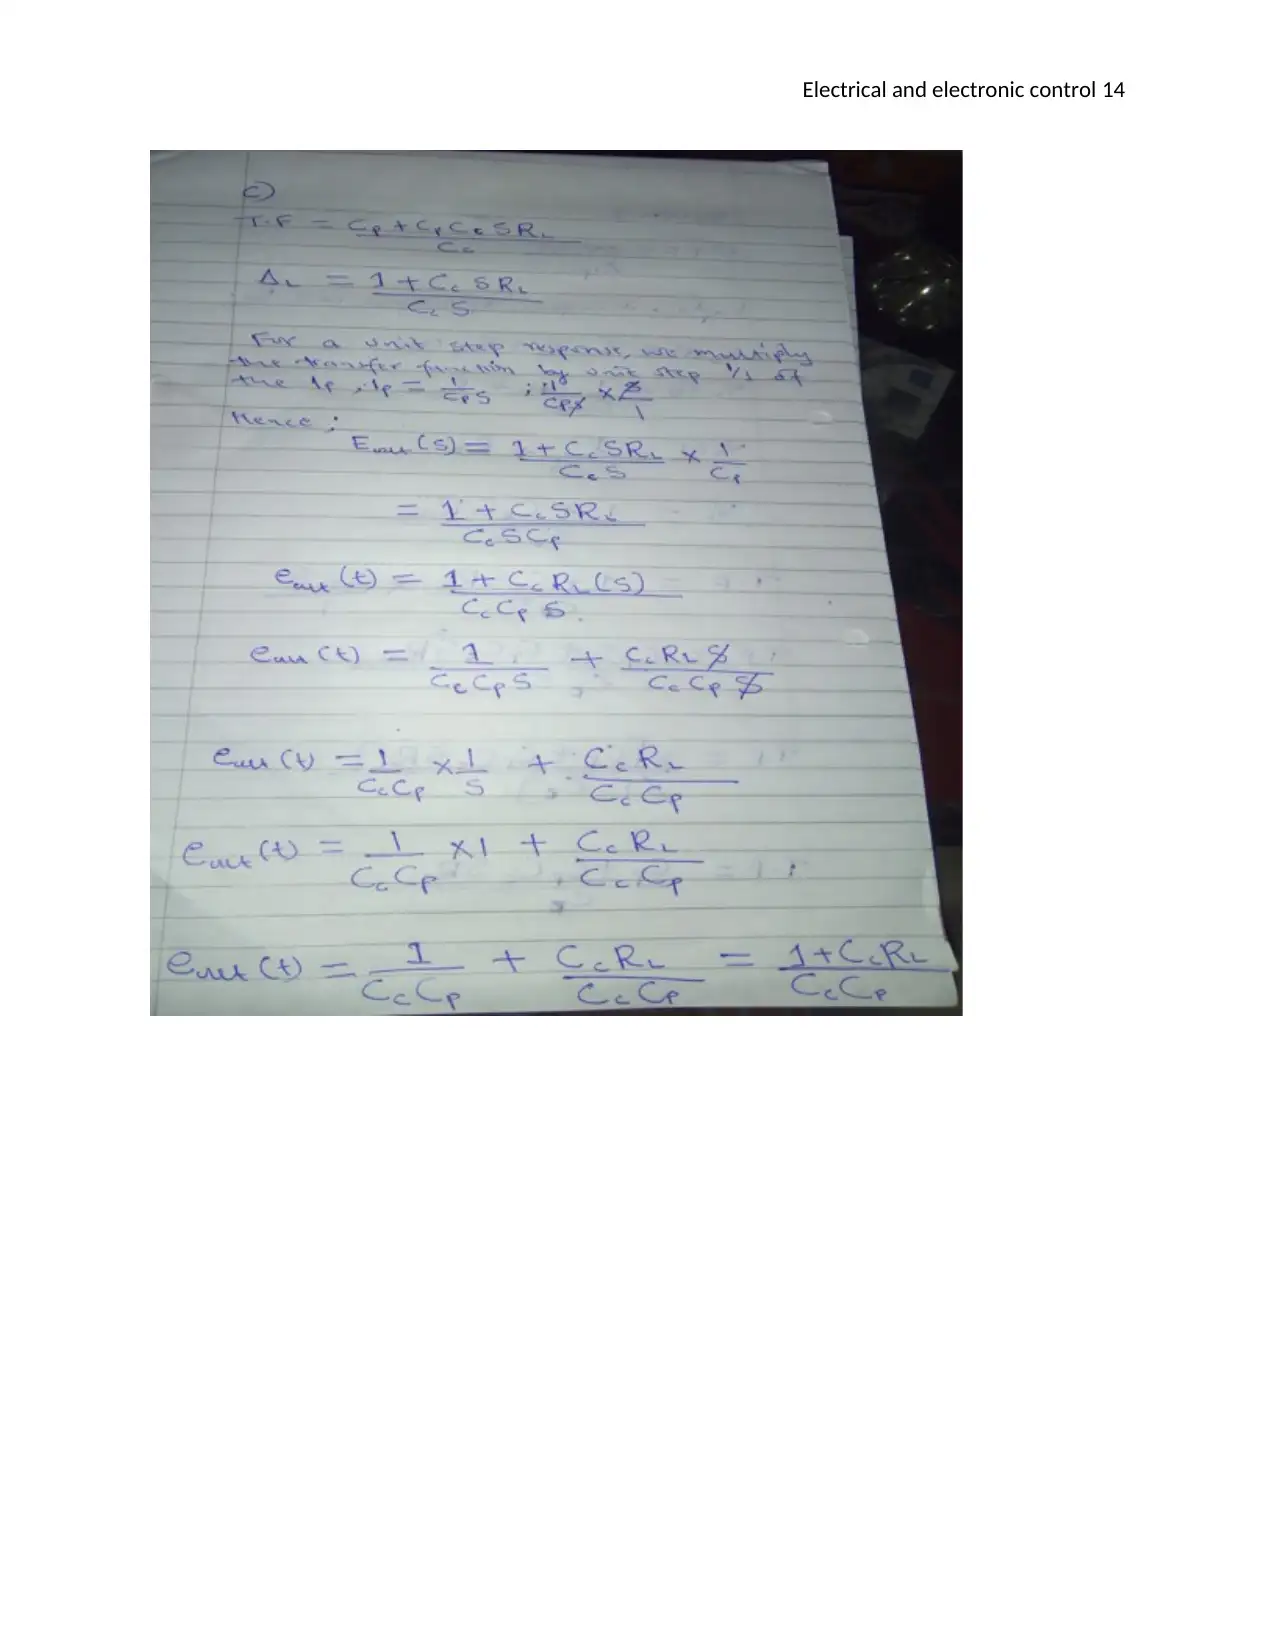 Electrical and electronic control 14
c)
T.F = Cp + Cp Cc S RL / Cc
ΔL = 1 + Cc S RL / Cc S
For a unit step response, we multiply
the transfer function by unit step 1/s of
the Ip, Ip = 1 / Cp S ; 1 / Cp S × S / 1
Hence :
Eout (S) = 1 + Cc S RL / Cc S × 1 / Cp
= 1 + Cc S RL / Cc S Cp
eout (t) = 1 + Cc RL (S) / Cc Cp S
eout (t) = 1 / Cc Cp S + Cc RL S / Cc Cp S
eout (t) = 1 / Cc Cp × 1 / S + Cc RL / Cc Cp
eout (t) = 1 / Cc Cp × 1 + Cc RL / Cc Cp
eout (t) = 1 / Cc Cp + Cc RL / Cc Cp = 1 + Cc RL / Cc Cp